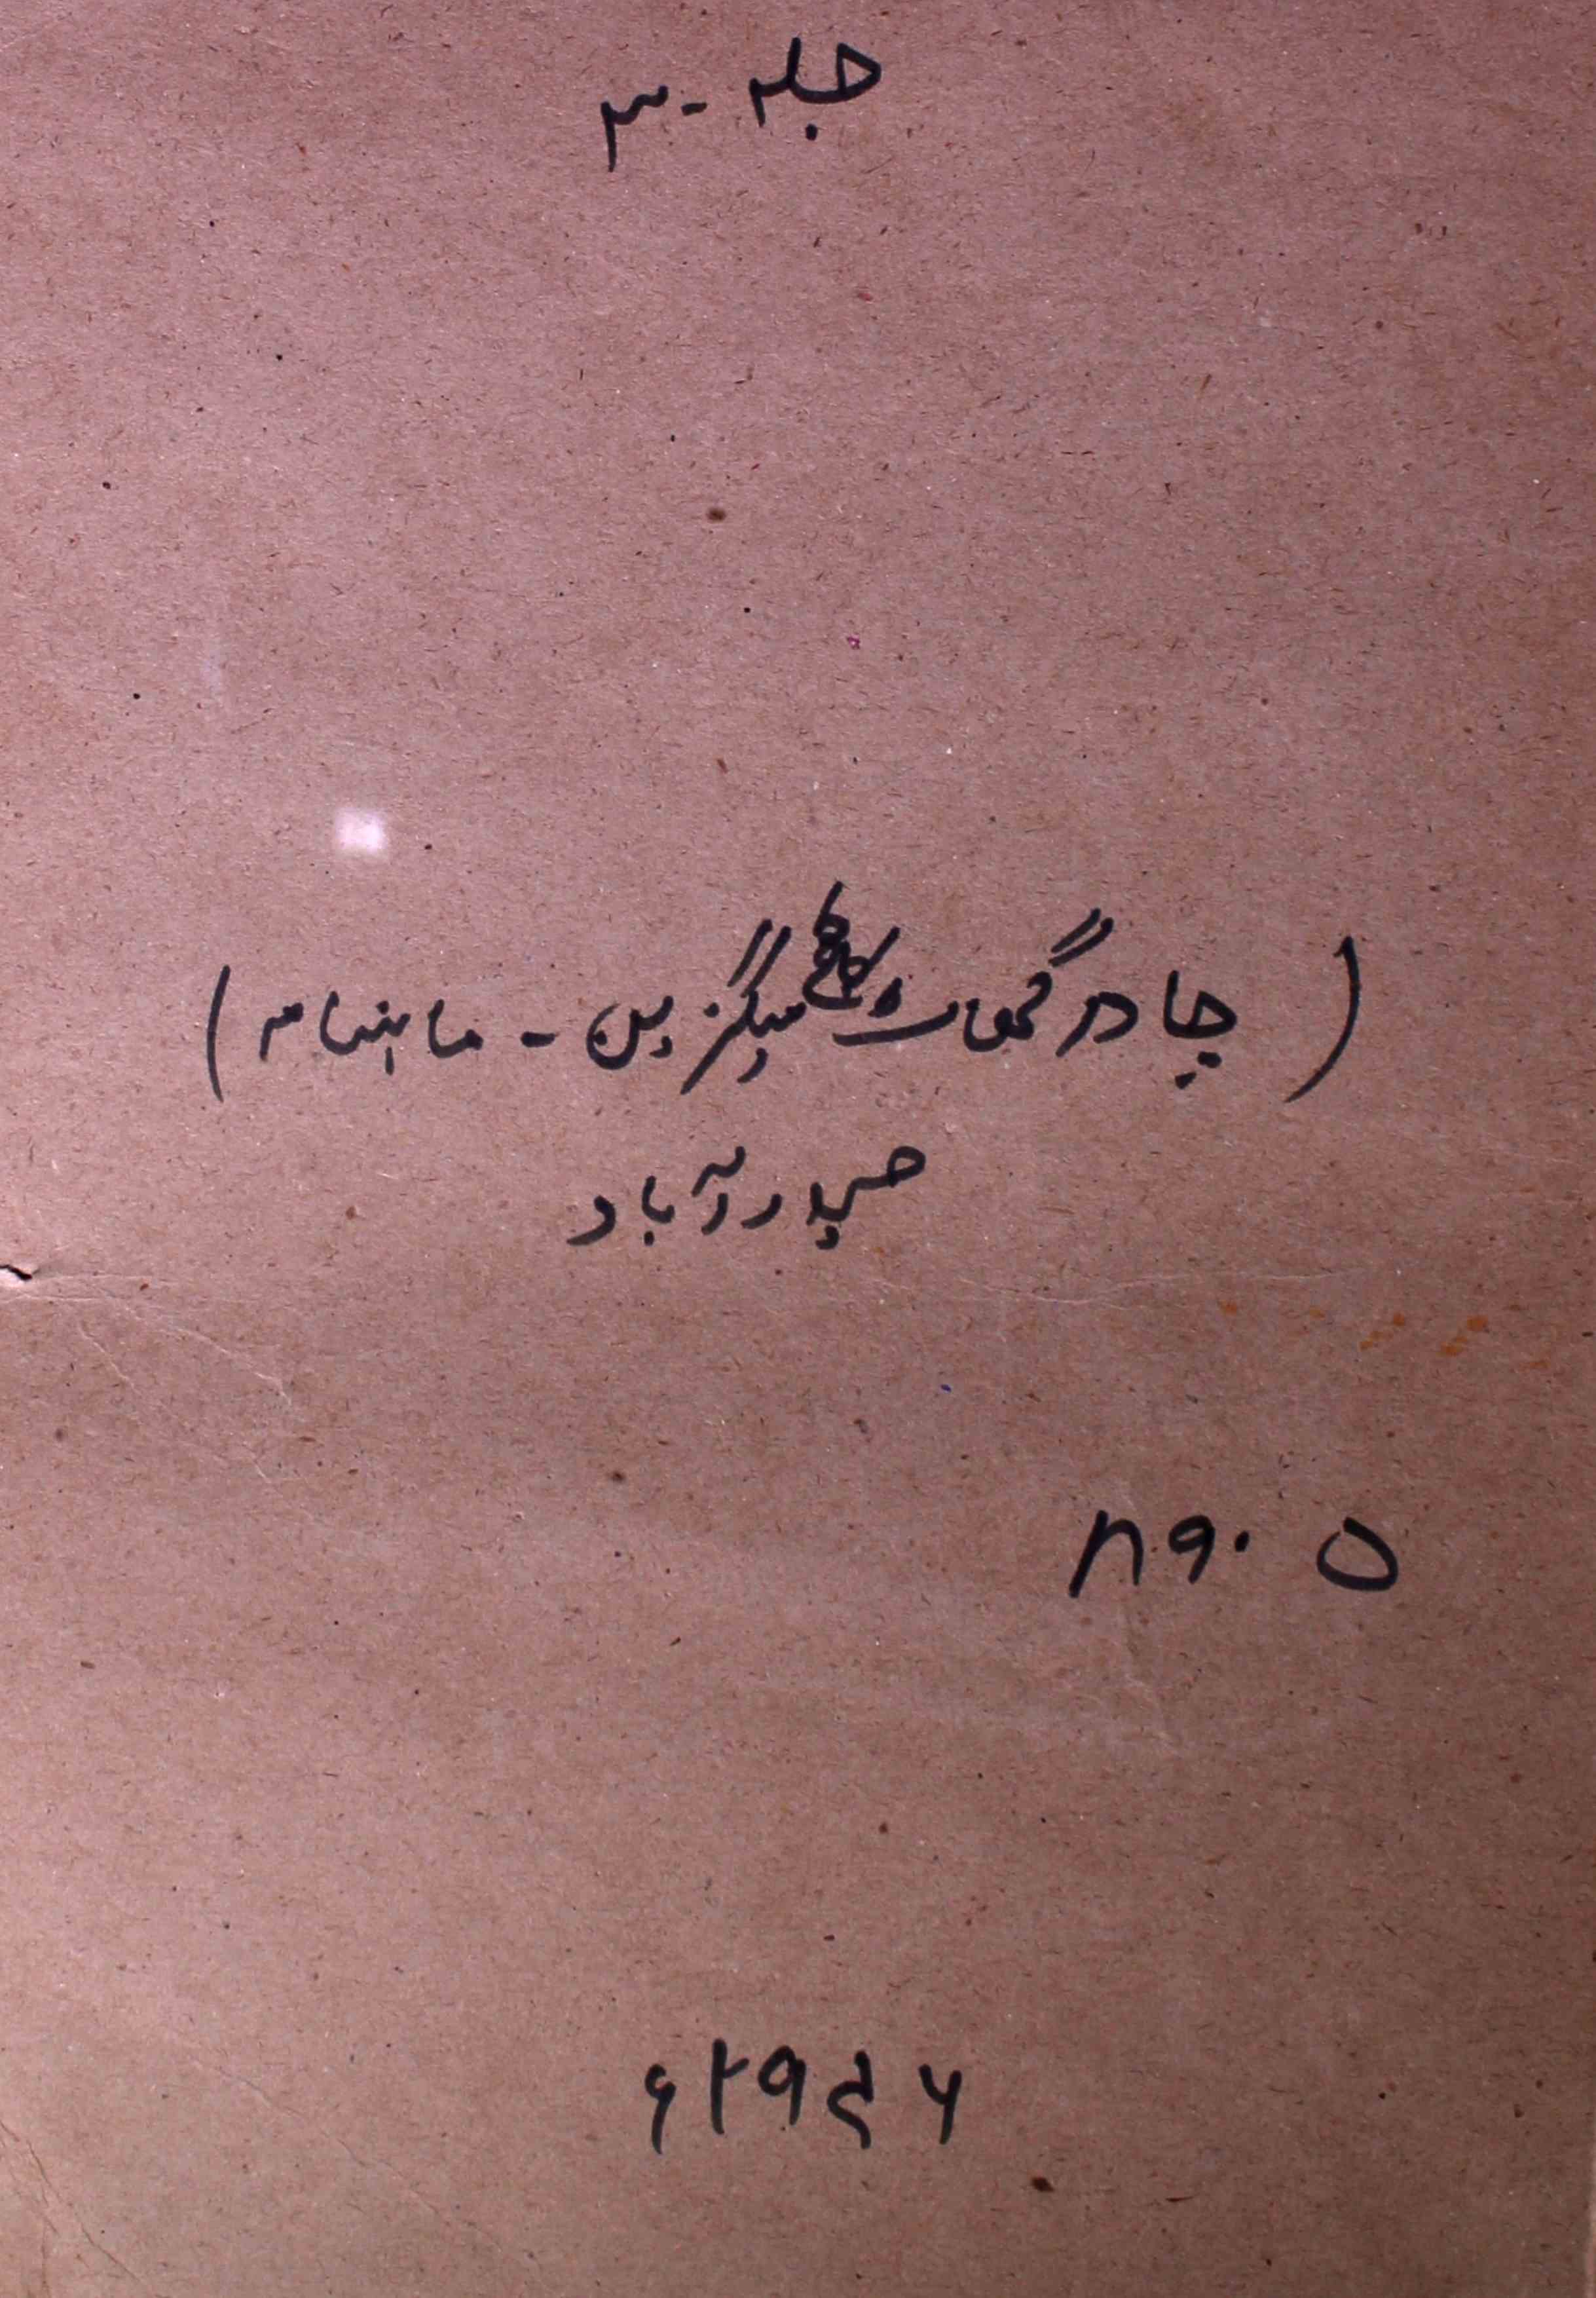 جلد - ۳
( چادرگھاٹ کالج میگزین - ماہنامہ )
حیدرآباد
۸۹۰۵